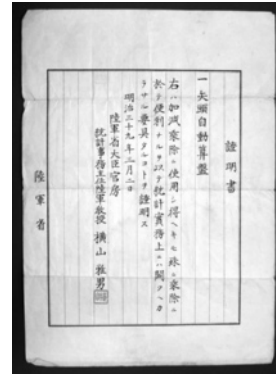 證明書
一矢頭自動算盤
右ハ加减乘除ニ使用シ得ヘキモ殊ニ乘除ニ
於テ便利ナルヲ以テ統計實務上ニハ闕クヘカ
ラサル要具タルコトヲ證明ス
明治三十九年三月二日
陸軍省大臣官房
統計事務主任陸軍教授 横山雅男
陸軍省